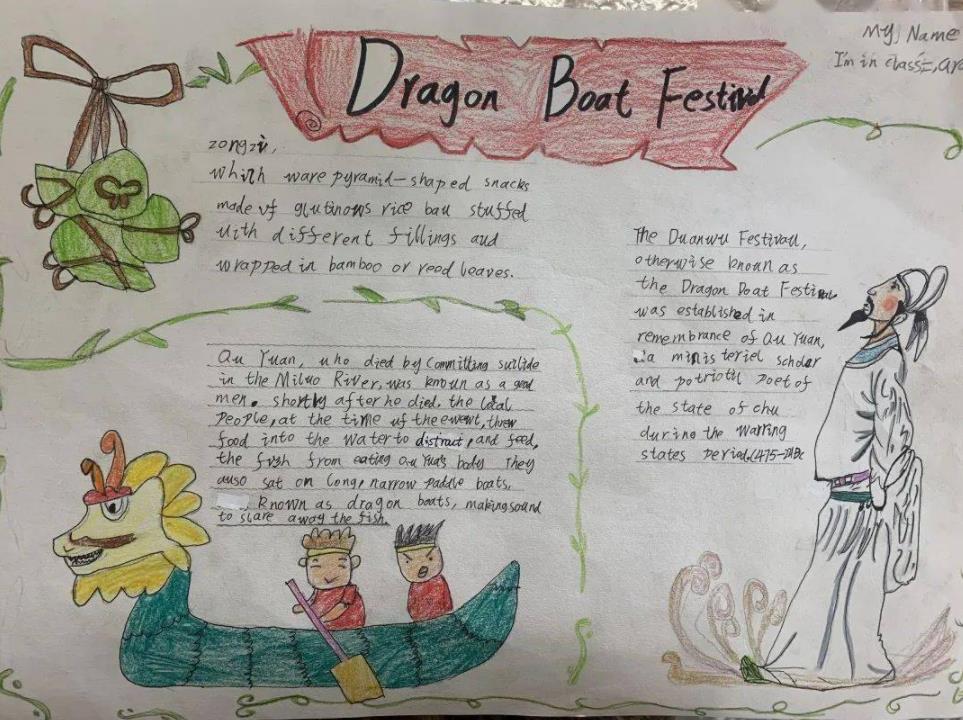 Dragon Boat Festival
My Name
I'm in class
zongzi,
which ware pyramid-shaped snacks
made of glutinous rice bau stuffed
with different fillings and
wrapped in bamboo or reed leaves.
Qu Yuan, who died by Committing suilide
in the Miluo River, was known as a good
men. shortly after he died, the local
People, at the time of the ewent, threw
food into the water to distract, and feed,
the fish from eating Qu Yua's body They
also sat on long, narrow paddle boats,
known as dragon boats, making sound
to scare away the fish.
The Duanwu Festival,
otherwise known as
the Dragon Boat Festival
was established in
remembrance of Qu Yuan,
a ministeriel scholar
and patriotic Poet of
the state of chu
during the Warring
states Period(475-